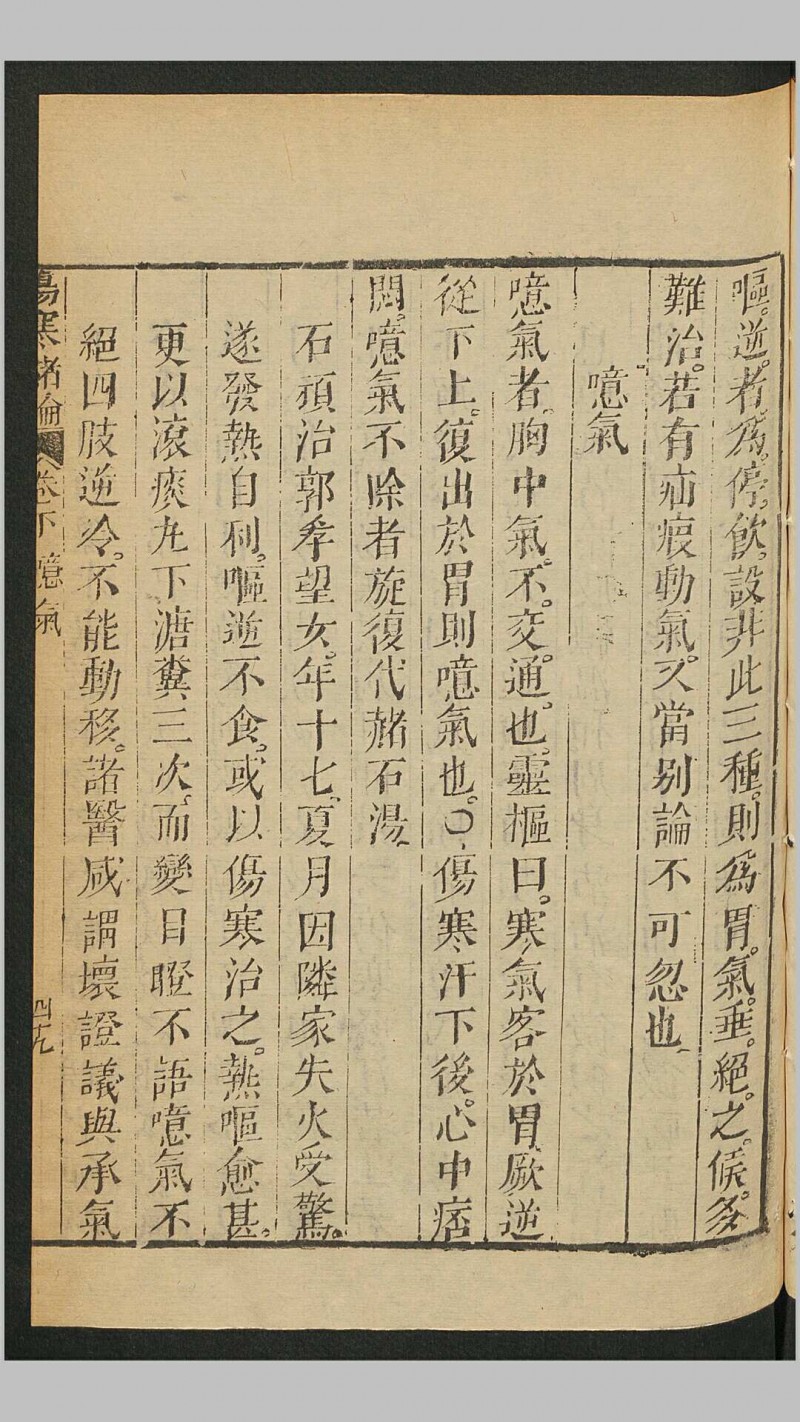 嘔。逆。者。為。停。飲。設非此三種。則為胃。氣。垂。絕。之。候。多。
難治。若有疝瘕動氣。又當别論不可忽也、
噫氣
噫氣者、胸中氣。不。交。通。也。靈樞曰。寒氣客於胃厥逆
從下上。復出於胃則噫氣也。○傷寒汗下後。心中痞
悶。噫氣不除者旋復代赭石湯、
石頑治郭孝聖女。年十七、夏月因隣家失火受驚。
遂發熱自利。嘔逆不食。或以傷寒治之。熱嘔愈甚。
更以滾痰丸下溏糞三次、而變目瞪不語噫氣不
絕四肢逆冷。不能動移。諸醫咸謂壞證議與承氣
傷寒緒論 卷下 噫氣 四九